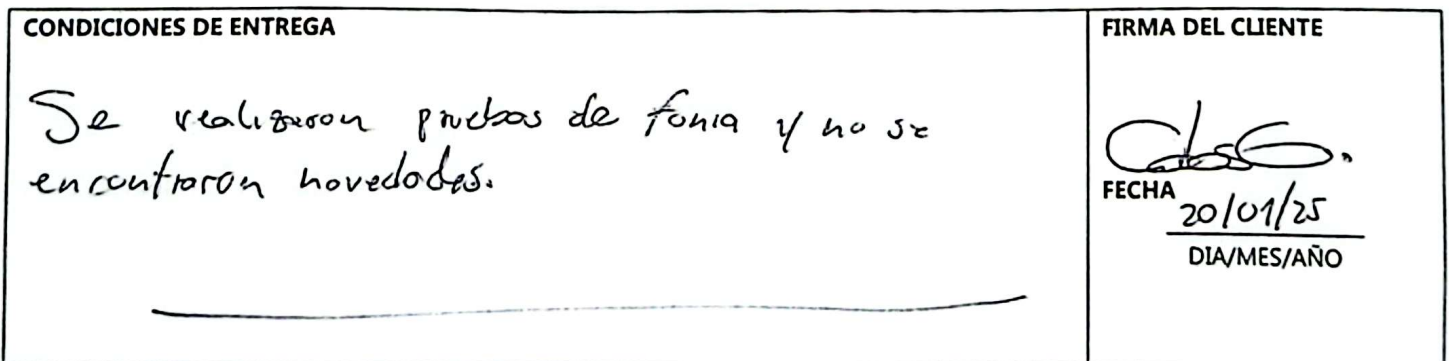 CONDICIONES DE ENTREGA
Se realizaron pruebas de fonia y no se
encontraron novedades.
FIRMA DEL CLIENTE
FECHA 20/01/25
DIA/MES/AÑO